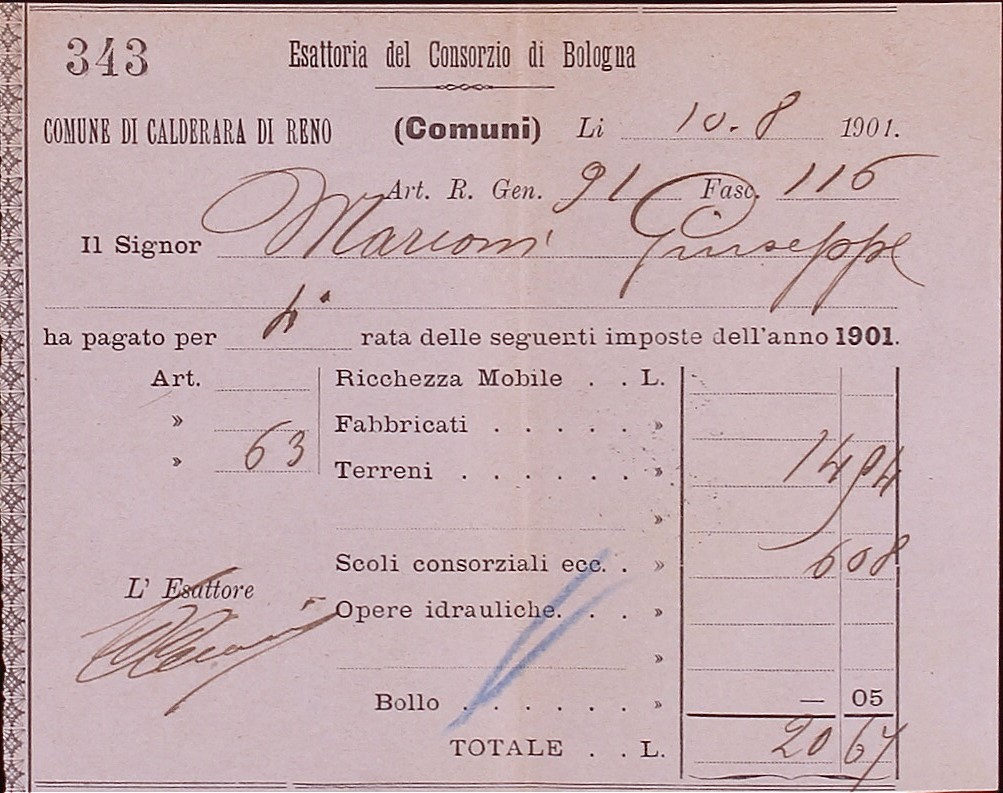 343 Esattoria del Consorzio di Bologna
COMUNE DI CALDERARA DI RENO (Comuni) Li 10-8 1901.
Art. R. Gen. 91 Fasc. 116
Il Signor Marconi Giuseppe
ha pagato per 4ª rata delle seguenti imposte dell'anno 1901.
Art. Ricchezza Mobile . . L.
» Fabbricati . . . . . »
» 63 Terreni . . . . . . » 14 54
»
Scoli consorziali ecc. . » 6 08
L' Esattore
Opere idrauliche. . . »
»
Bollo . . . . . . » — 05
TOTALE . . L. 20 67